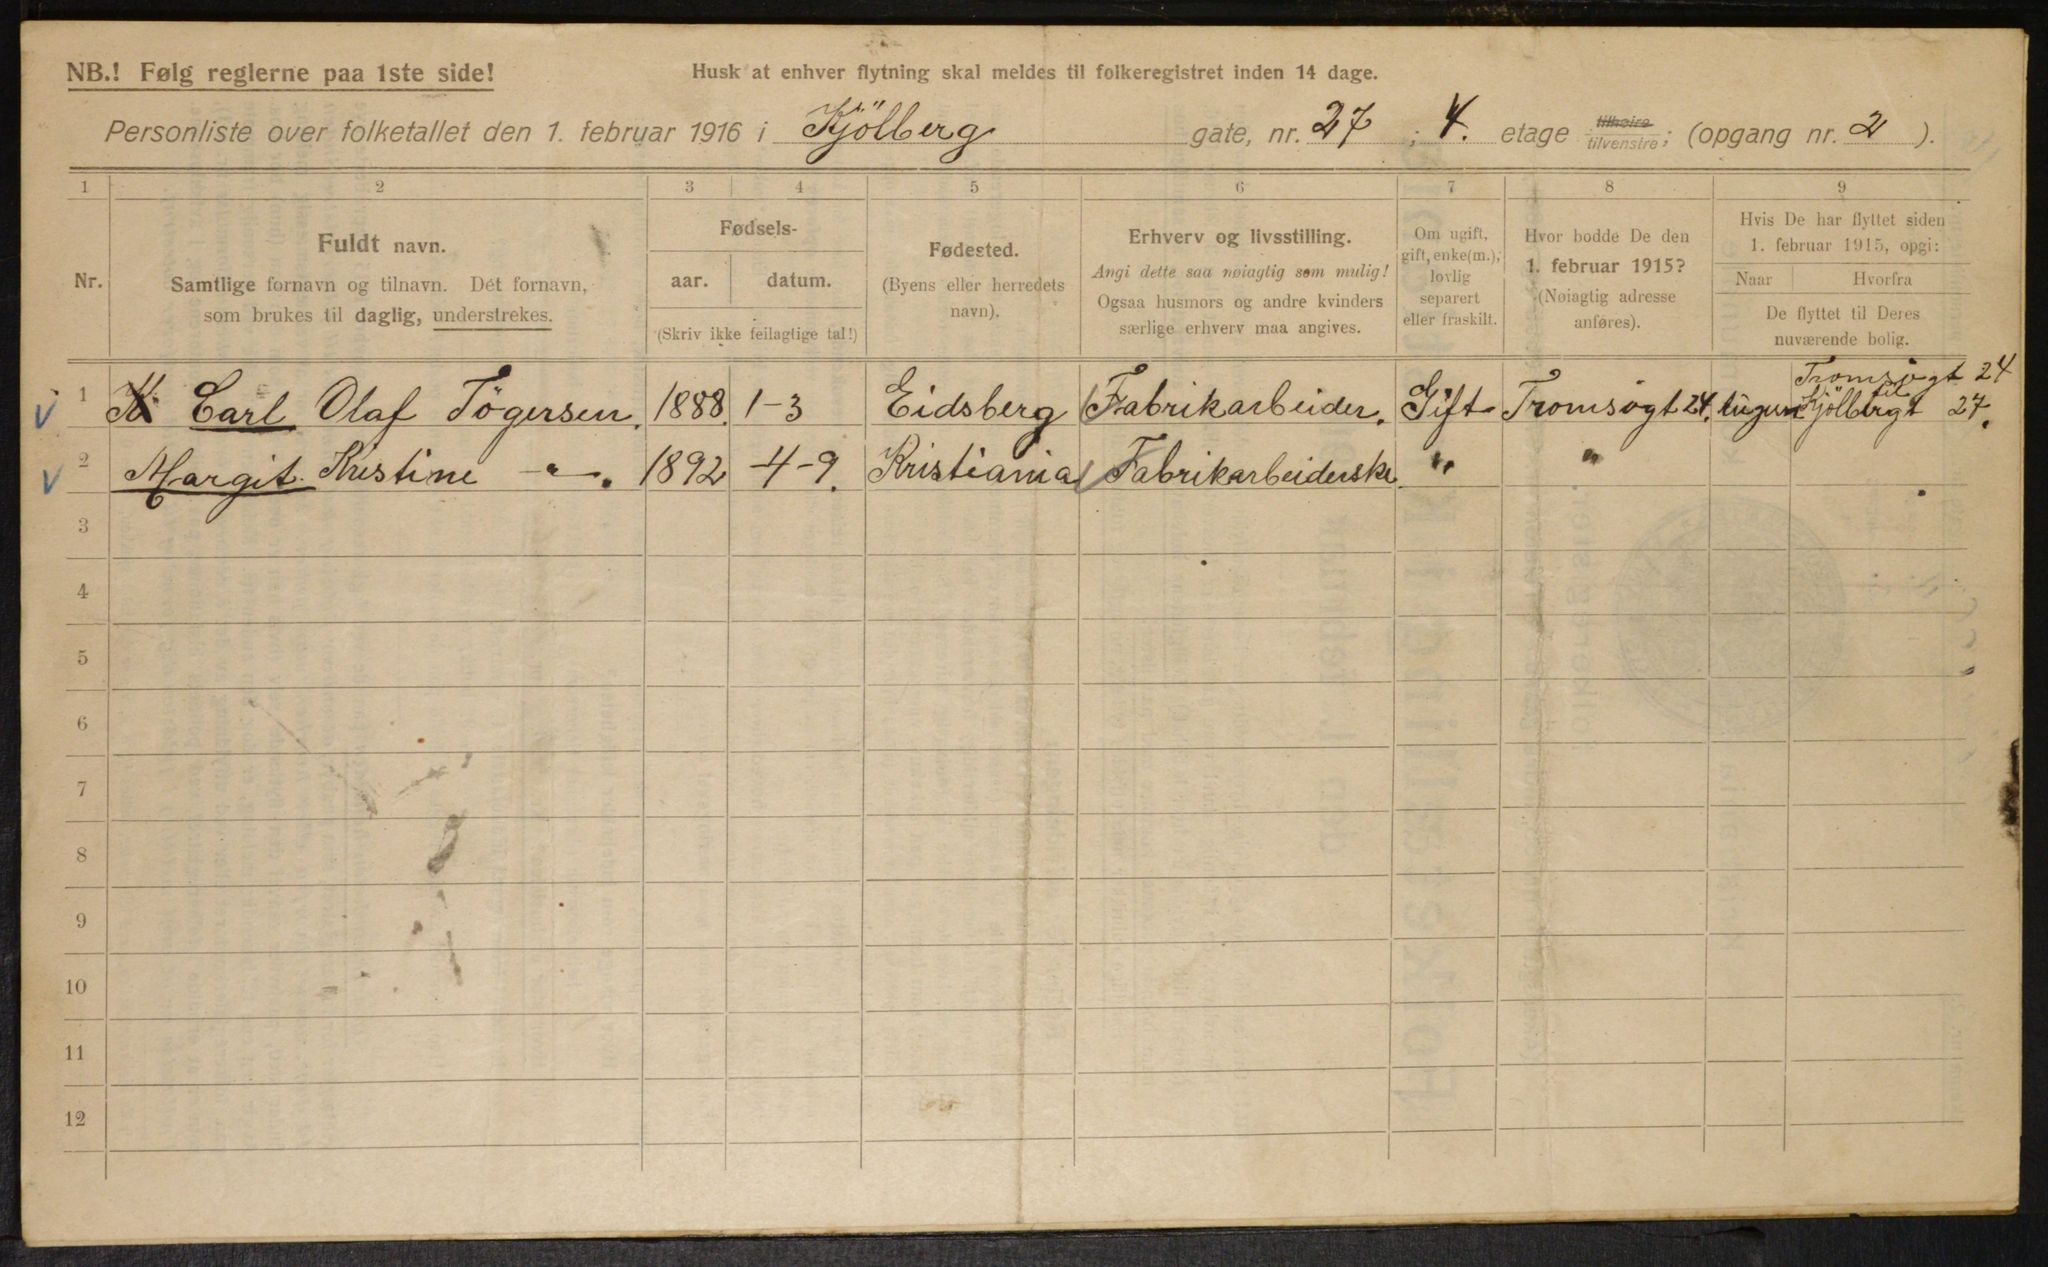 NB.! Følg reglerne paa 1ste side!
Husk at enhver flytning skal meldes til folkeregistret inden 14 dage.
Personliste over folketallet den 1. februar 1916 i Kjölberg gate, nr. 27 ; 4. etage tilhøire tilvenstre; (opgang nr. 2 ).
1 2 3 4 5 6 7 8 9
Nr.
Fuldt navn.
Samtlige fornavn og tilnavn. Dét fornavn,
som brukes til daglig, understrekes.
Fødsels-
aar. datum.
(Skriv ikke feilagtige tal!)
Fødested.
(Byens eller herredets
navn).
Erhverv og livsstilling.
Angi dette saa nøiagtig som mulig!
Ogsaa husmors og andre kvinders
særlige erhverv maa angives.
Om ugift,
gift, enke(m.),
lovlig
separert
eller fraskilt.
Hvor bodde De den
1. februar 1915?
(Nøiagtig adresse
anføres).
Hvis De har flyttet siden
1. februar 1915, opgi:
Naar Hvorfra
De flyttet til Deres
nuværende bolig.
1 Carl Olaf Tögersen. 1888. 1-3 Eidsberg Fabrikarbeider. Gift Tromsøgt 24. Tromsøgt 24
til
Kjölbergt 27.
2 Margit Kristine -"-. 1892 4-9. Kristiania Fabrikarbeiderske " "
3
4
5
6
7
8
9
10
11
12